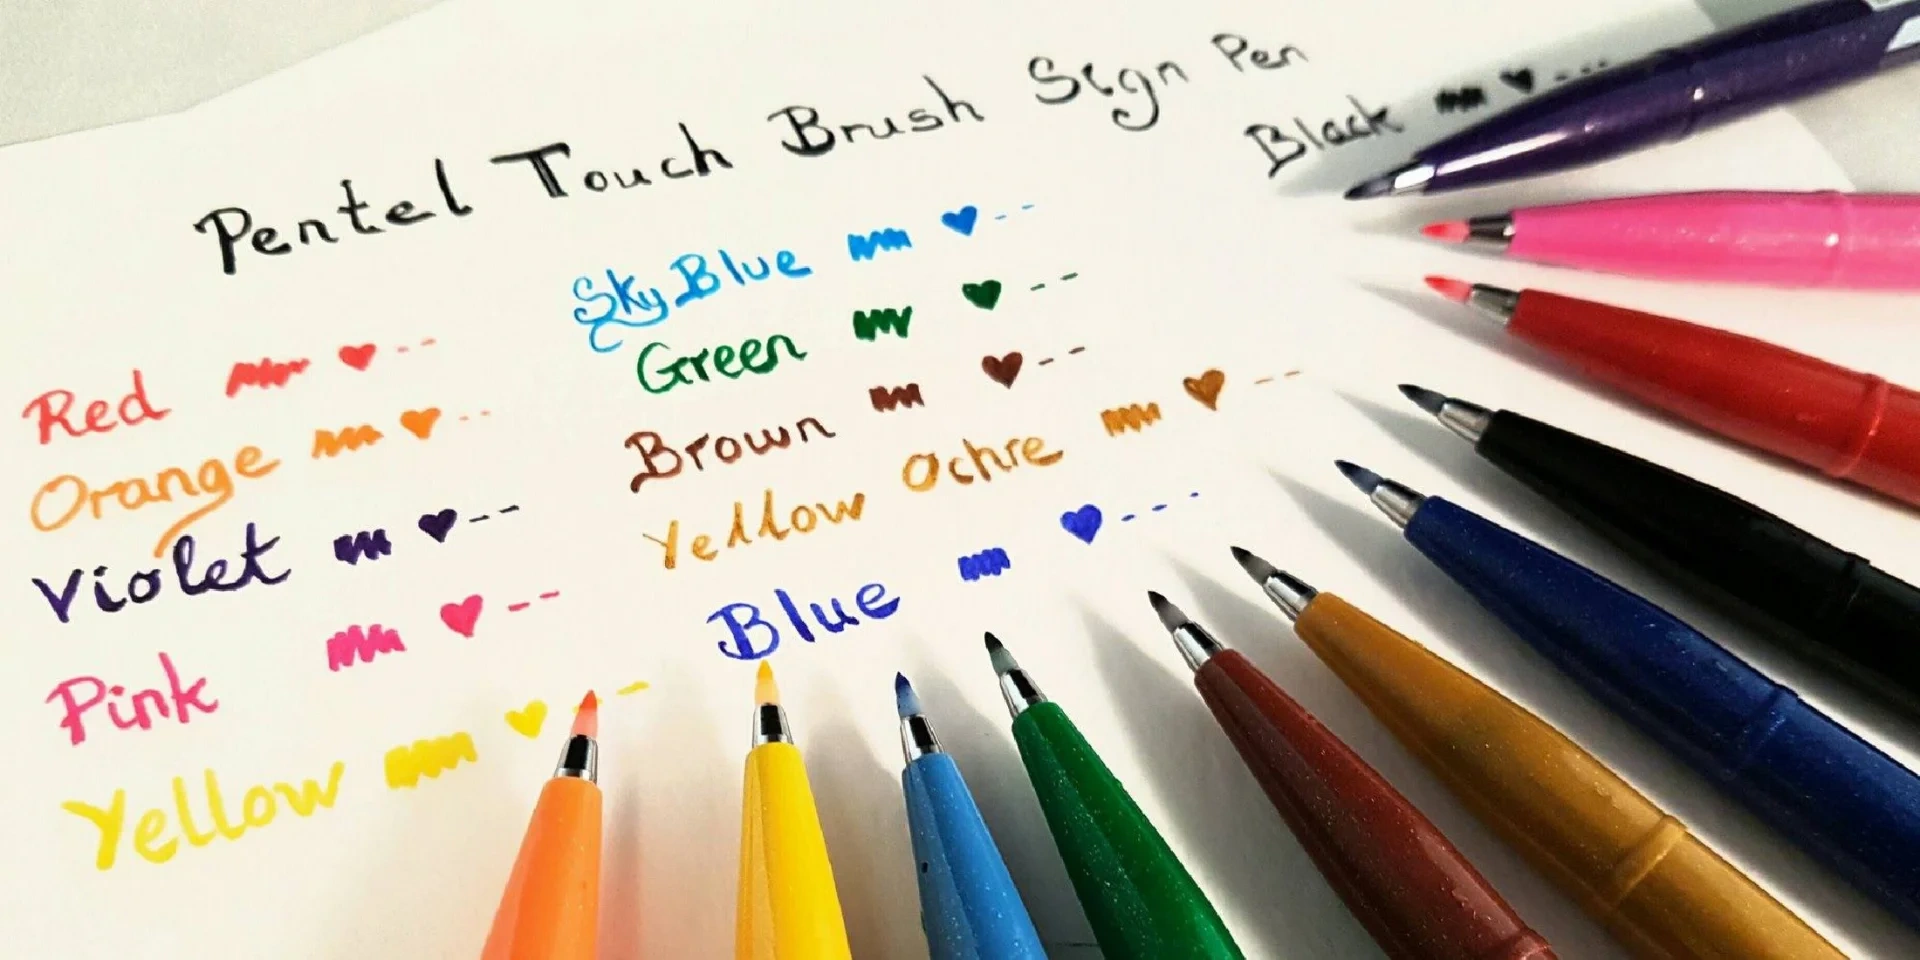 Pentel Touch Brush Sign Pen
Black
Red
Orange
Violet
Pink
Yellow
Sky Blue
Green
Brown
Yellow Ochre
Blue